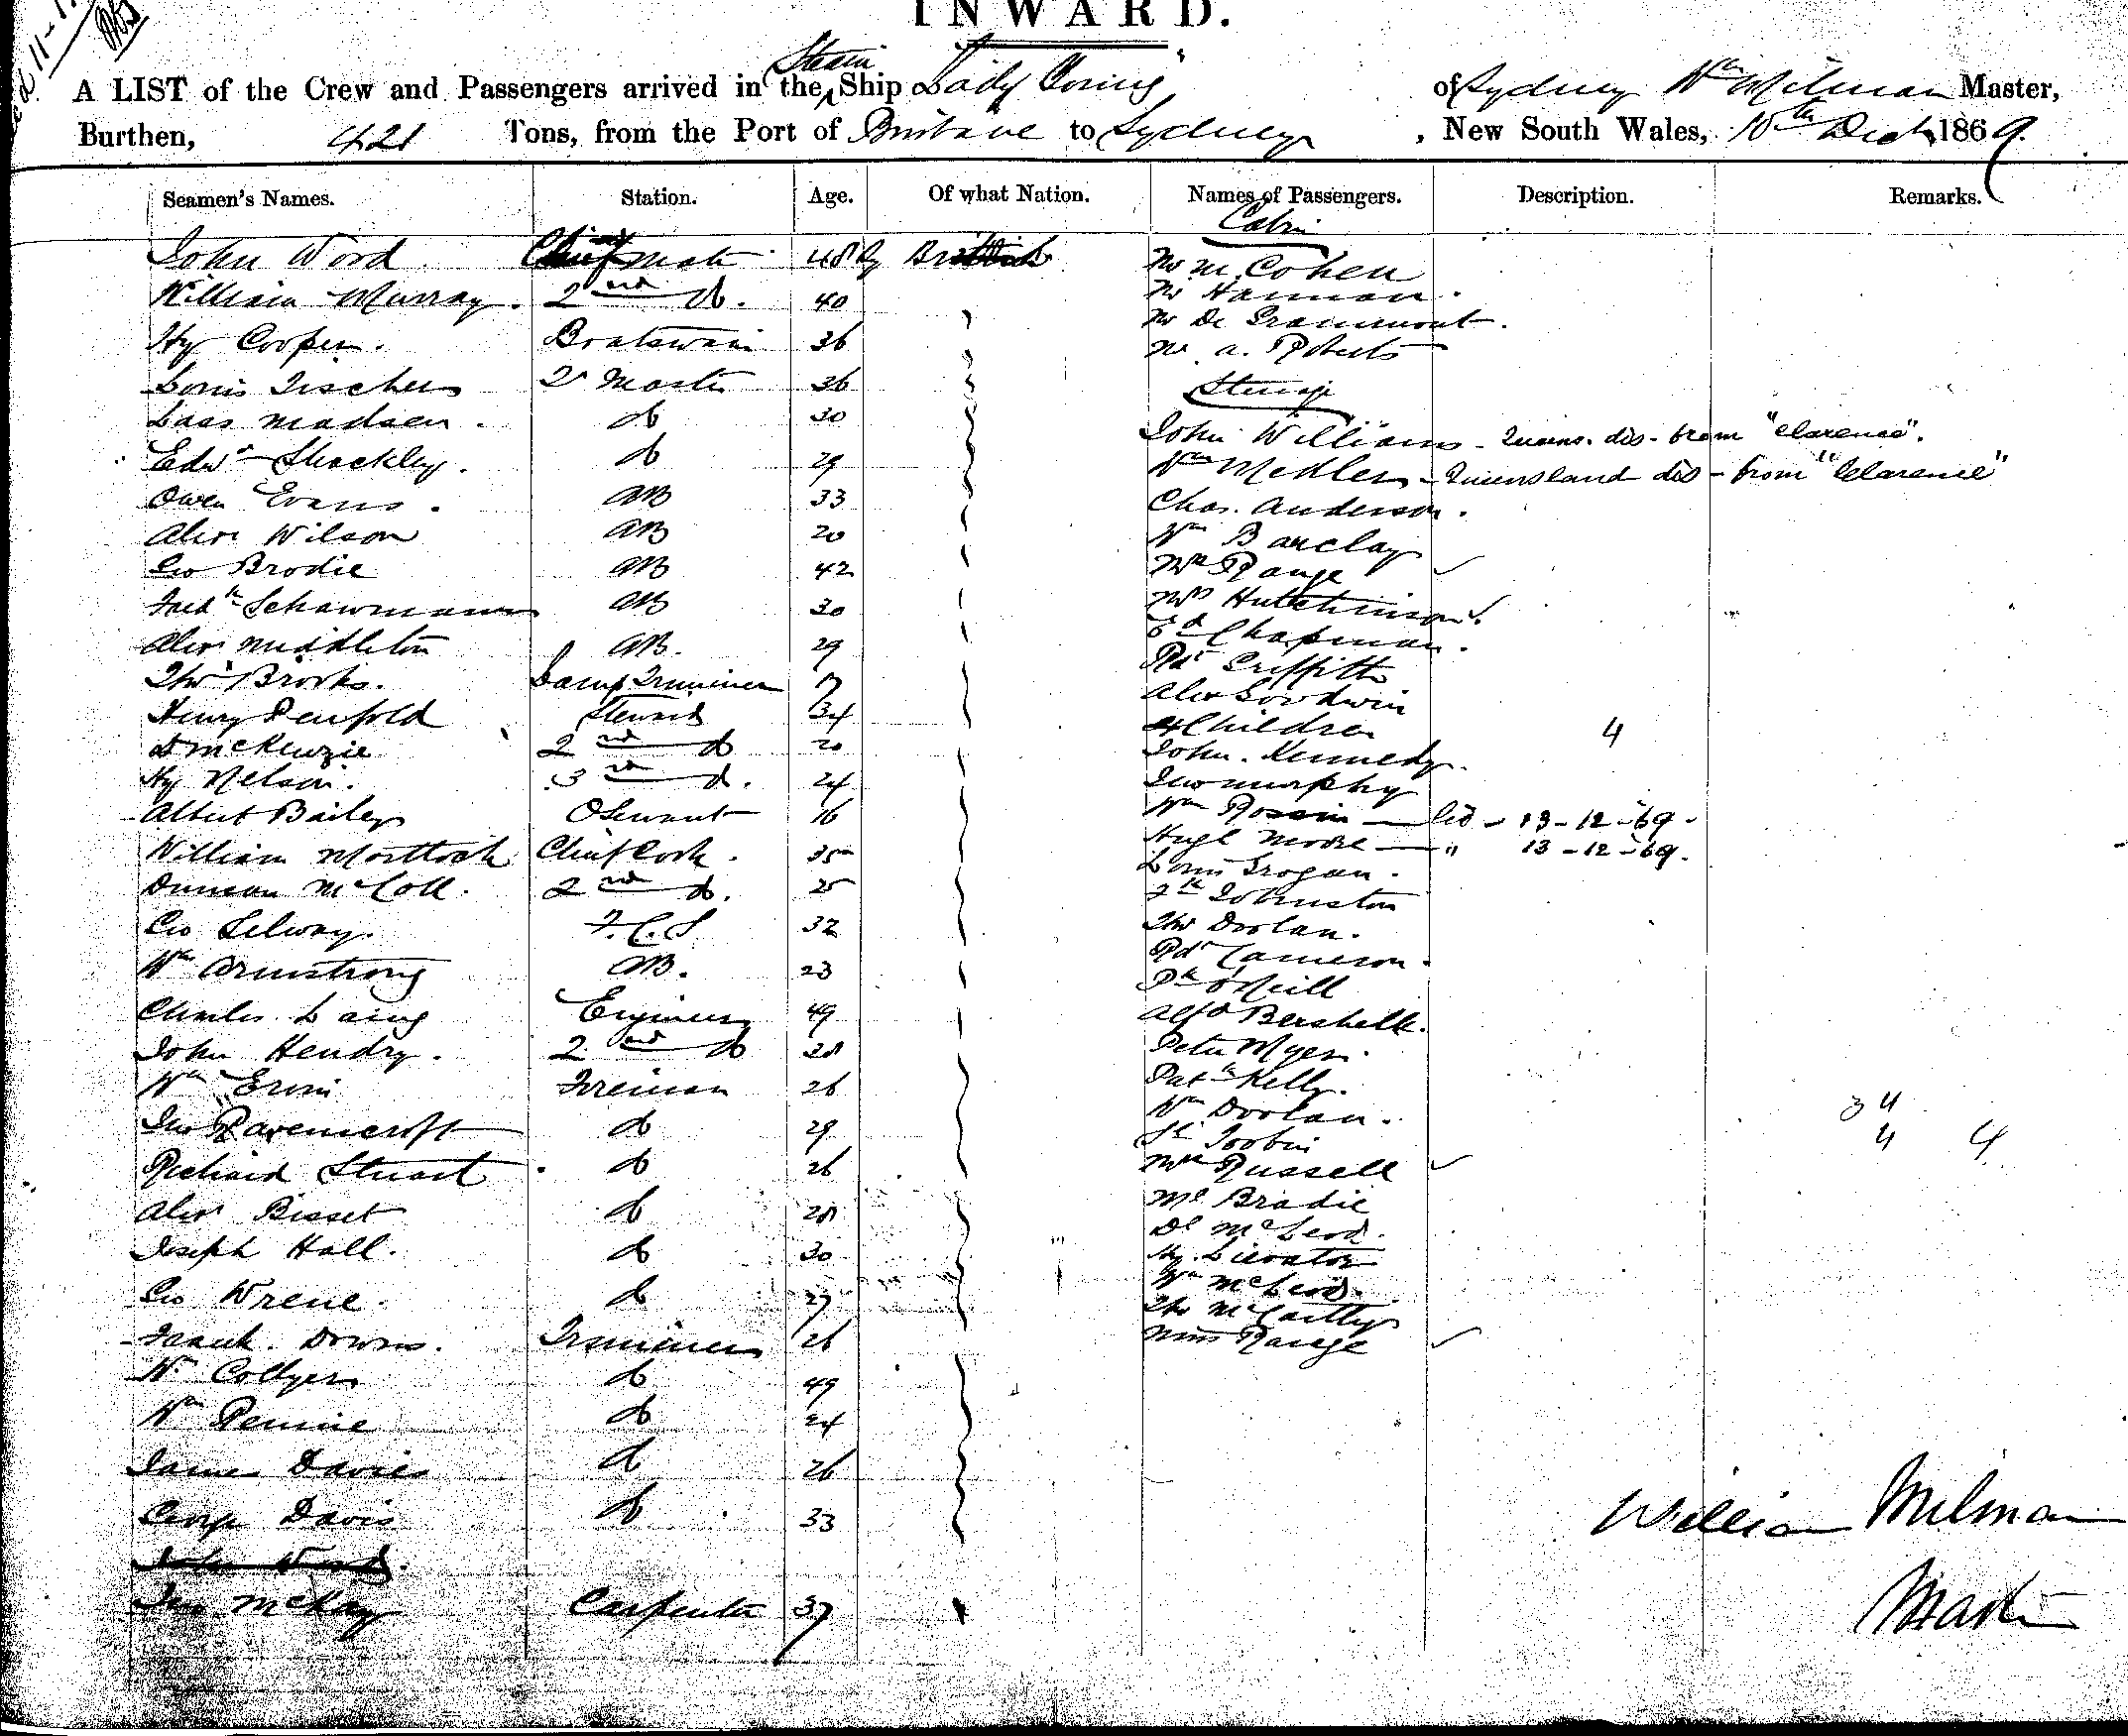 INWARD.
A LIST of the Crew and Passengers arrived in the Steam Ship "Lady Young" of Sydney Wm Milman Master,
Burthen, 421 Tons, from the Port of Brisbane to Sydney, New South Wales, 10th Decr 1869.
Seamen's Names. Station. Age. Of what Nation. Names of Passengers. Description. Remarks.
Cabin
John Wood Chief mate 48 British Mr M. Cohen
William Murray. 2nd do. 40 Mr Hannan.
Mr De Grammont.
Hy Cooper. Boatswain 36 Mr A. Roberts
Louis Fischer 36
Steerage
Laas Madsen. do 30 John Williams - Queens. dis - from "Clarence".
Edwd Shackley. do 29 Wm Medler - Queensland dis - from "Clarence"
Owen Evans. AB 33 Chas. Anderson.
Alexr Wilson AB 20 Wm Barclay
Geo Brodie AB 42 Mrs Range
Fredk Schawmann AB 30 Mrs Hutchinson.
Alexr Middleton AB. 29 Ed Chapman.
Rd Griffith
Thos Brooks. Lamp Trimmer 17 Alex Goodwin
Henry Penfold Steward 34 4 Children 4
D McKenzie 2nd do 20 John Kennedy.
Hy Nelson. 3rd d. 24 Jno Murphy
Albert Bailey 16 Wm Rossin - 13-12-69.
William Mortlock Chief Cook. 35 Hugh Moore - " 13-12-69.
Duncan McColl. 2nd do. 25 Louis Grogan.
Johnston
Geo Selway. F.C.S 32 Thos Doolan.
Wm Armstrong AB. 23 Rd Cameron.
Pk O'Neill
Charles Laing Engineer 49 Alfd Bershell.
John Hendry. 2nd do 28 Peter Myers.
Wm Fireman 26 Patk Kelly.
Jno Ravenscroft do 29 Wm Doolan. 34
Toobin 4 4
Richard Stuart. do 26 Mrs Russell
Alexr Bisset do 28 Bradie
Joseph Hall. do 30 Dl McLeod.
Hy.
Geo Wrene. do 27 Wm McLeod.
Thos McCarthy
Frank Downs. Trimmer 26 Miss Range
Wm Collyer do 49
Wm Rennie do 24
James Davies do 26
George Davis do 33 William Milman
John Wood.
Jno McKay Carpenter 37 Master